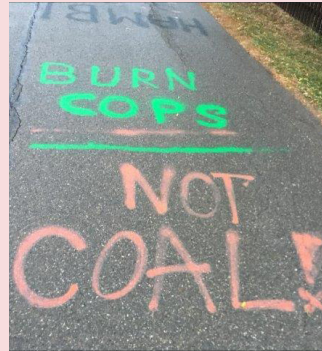 BURN
COPS
NOT
COAL!